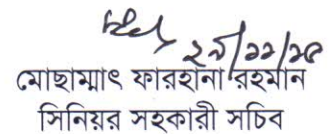 ২৯/১১/১৫
মোছাম্মাৎ ফারহানা রহমান
সিনিয়র সহকারী সচিব